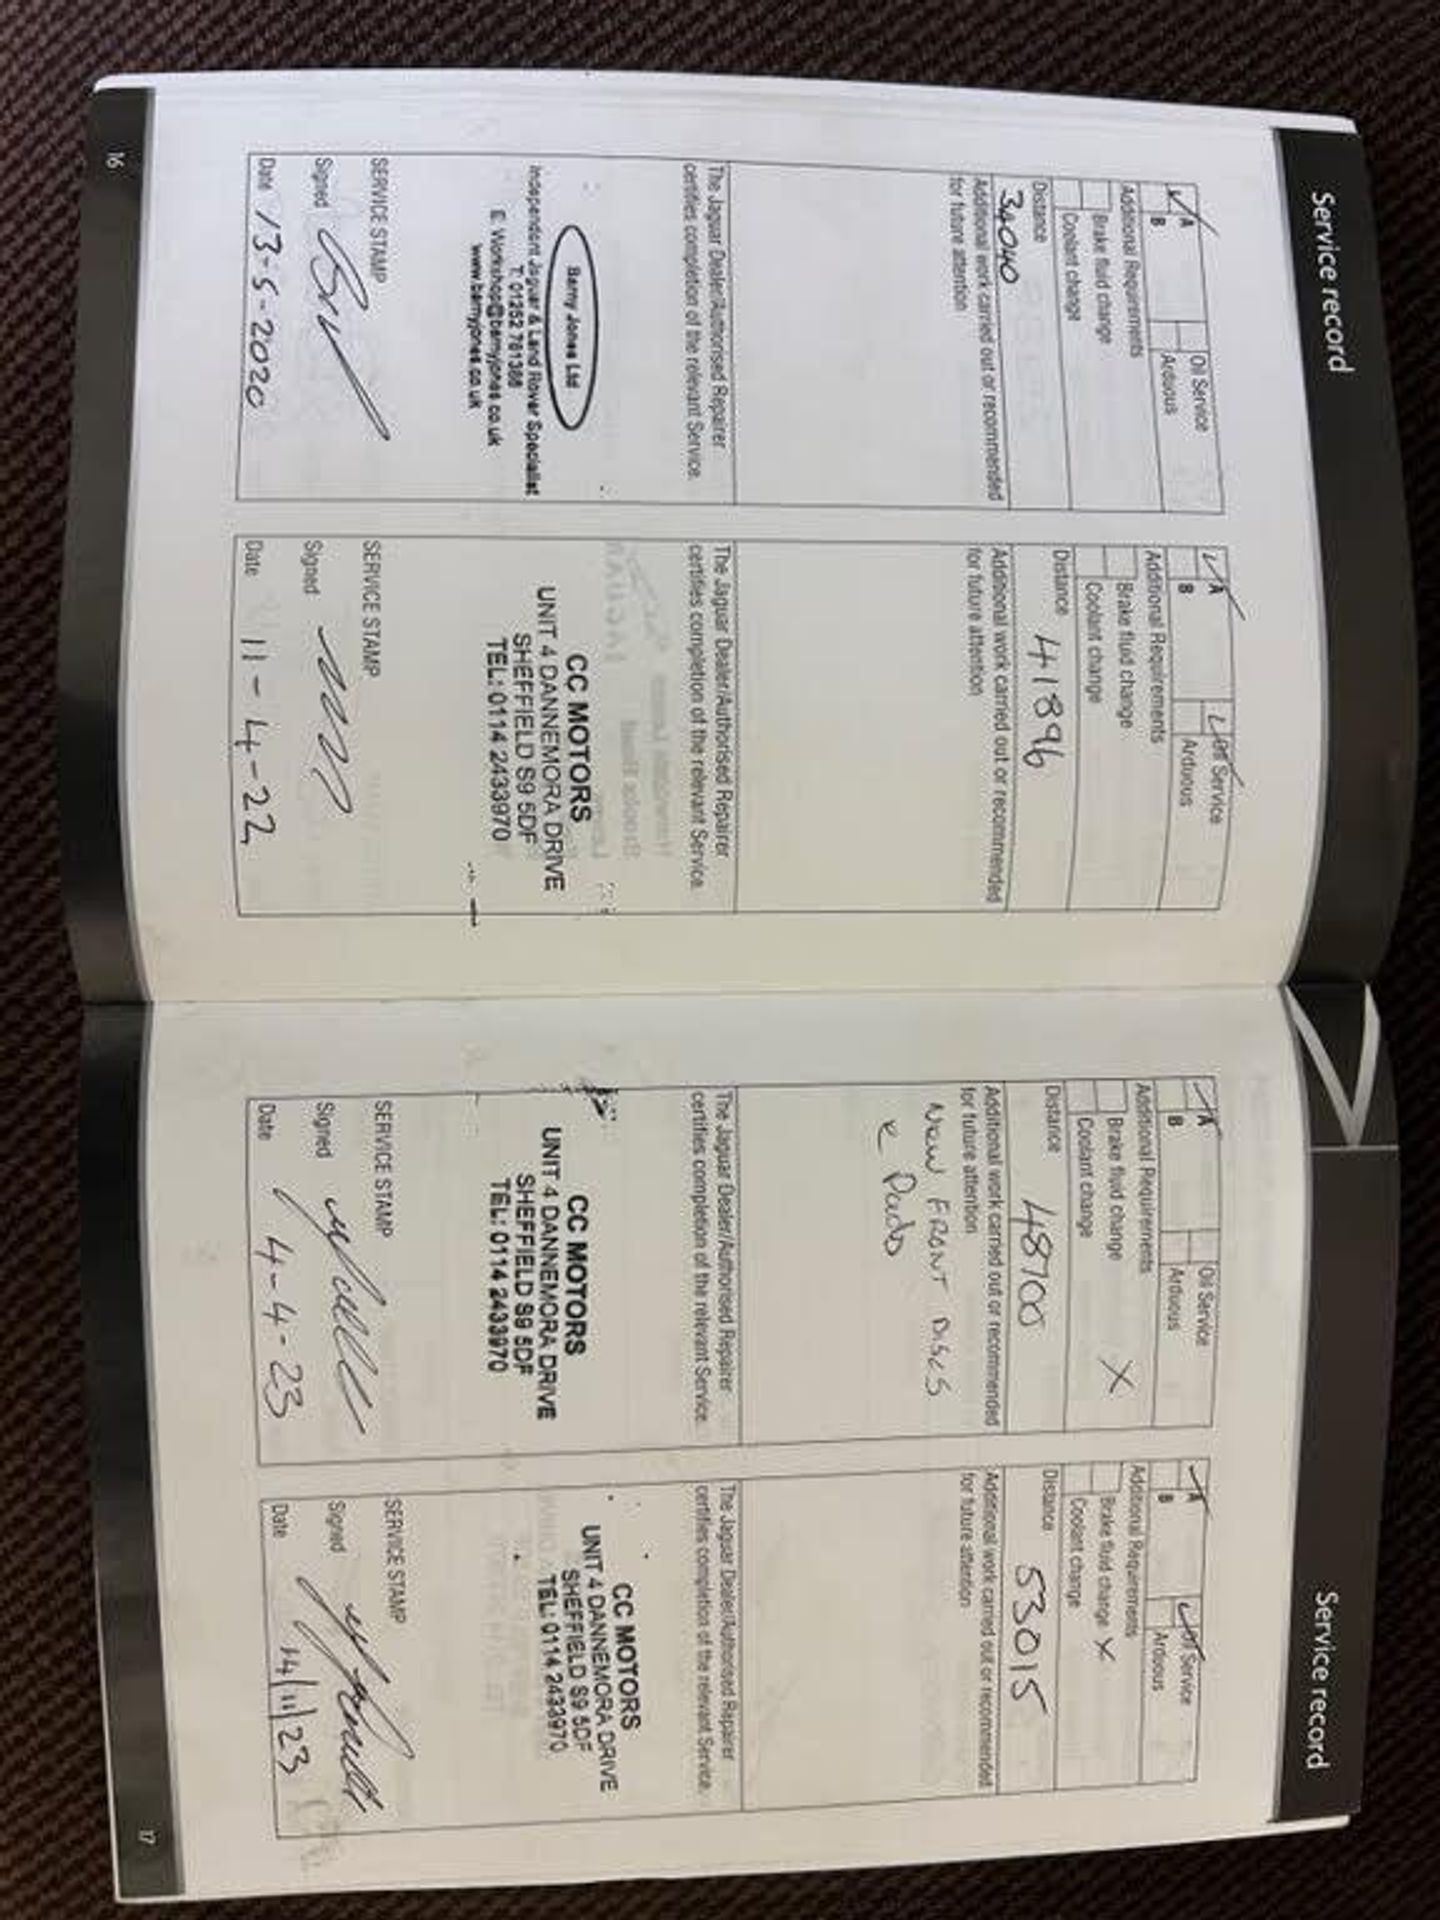 Service record
A
B
Oil Service
Arduous
Additional Requirements
Brake fluid change
Coolant change
Distance
34040
Additional work carried out or recommended
for future attention
The Jaguar Dealer/Authorised Repairer
certifies completion of the relevant Service.
Barny Jones Ltd
Independent Jaguar & Land Rover Specialist
T: 01252 781388
E: Workshop@barnyjones.co.uk
www.barnyjones.co.uk
SERVICE STAMP
Signed
Date 13-5-2020
A
B
Oil Service
Arduous
Additional Requirements
Brake fluid change
Coolant change
Distance 41896
Additional work carried out or recommended
for future attention
The Jaguar Dealer/Authorised Repairer
certifies completion of the relevant Service.
CC MOTORS
UNIT 4 DANNEMORA DRIVE
SHEFFIELD S9 5DF
TEL: 0114 2433970
SERVICE STAMP
Signed
Date 11-4-22
16
Service record
A
B
Oil Service
Arduous
Additional Requirements
Brake fluid change X
Coolant change
Distance 48700
Additional work carried out or recommended
for future attention
New FRONT DISCS
& Pads
The Jaguar Dealer/Authorised Repairer
certifies completion of the relevant Service.
CC MOTORS
UNIT 4 DANNEMORA DRIVE
SHEFFIELD S9 5DF
TEL: 0114 2433970
SERVICE STAMP
Signed
Date 4-4-23
A
B
Oil Service
Arduous
Additional Requirements
Brake fluid change X
Coolant change
Distance 53015
Additional work carried out or recommended
for future attention
The Jaguar Dealer/Authorised Repairer
certifies completion of the relevant Service.
CC MOTORS
UNIT 4 DANNEMORA DRIVE
SHEFFIELD S9 5DF
TEL: 0114 2433970
SERVICE STAMP
Signed
Date 14/11/23
17